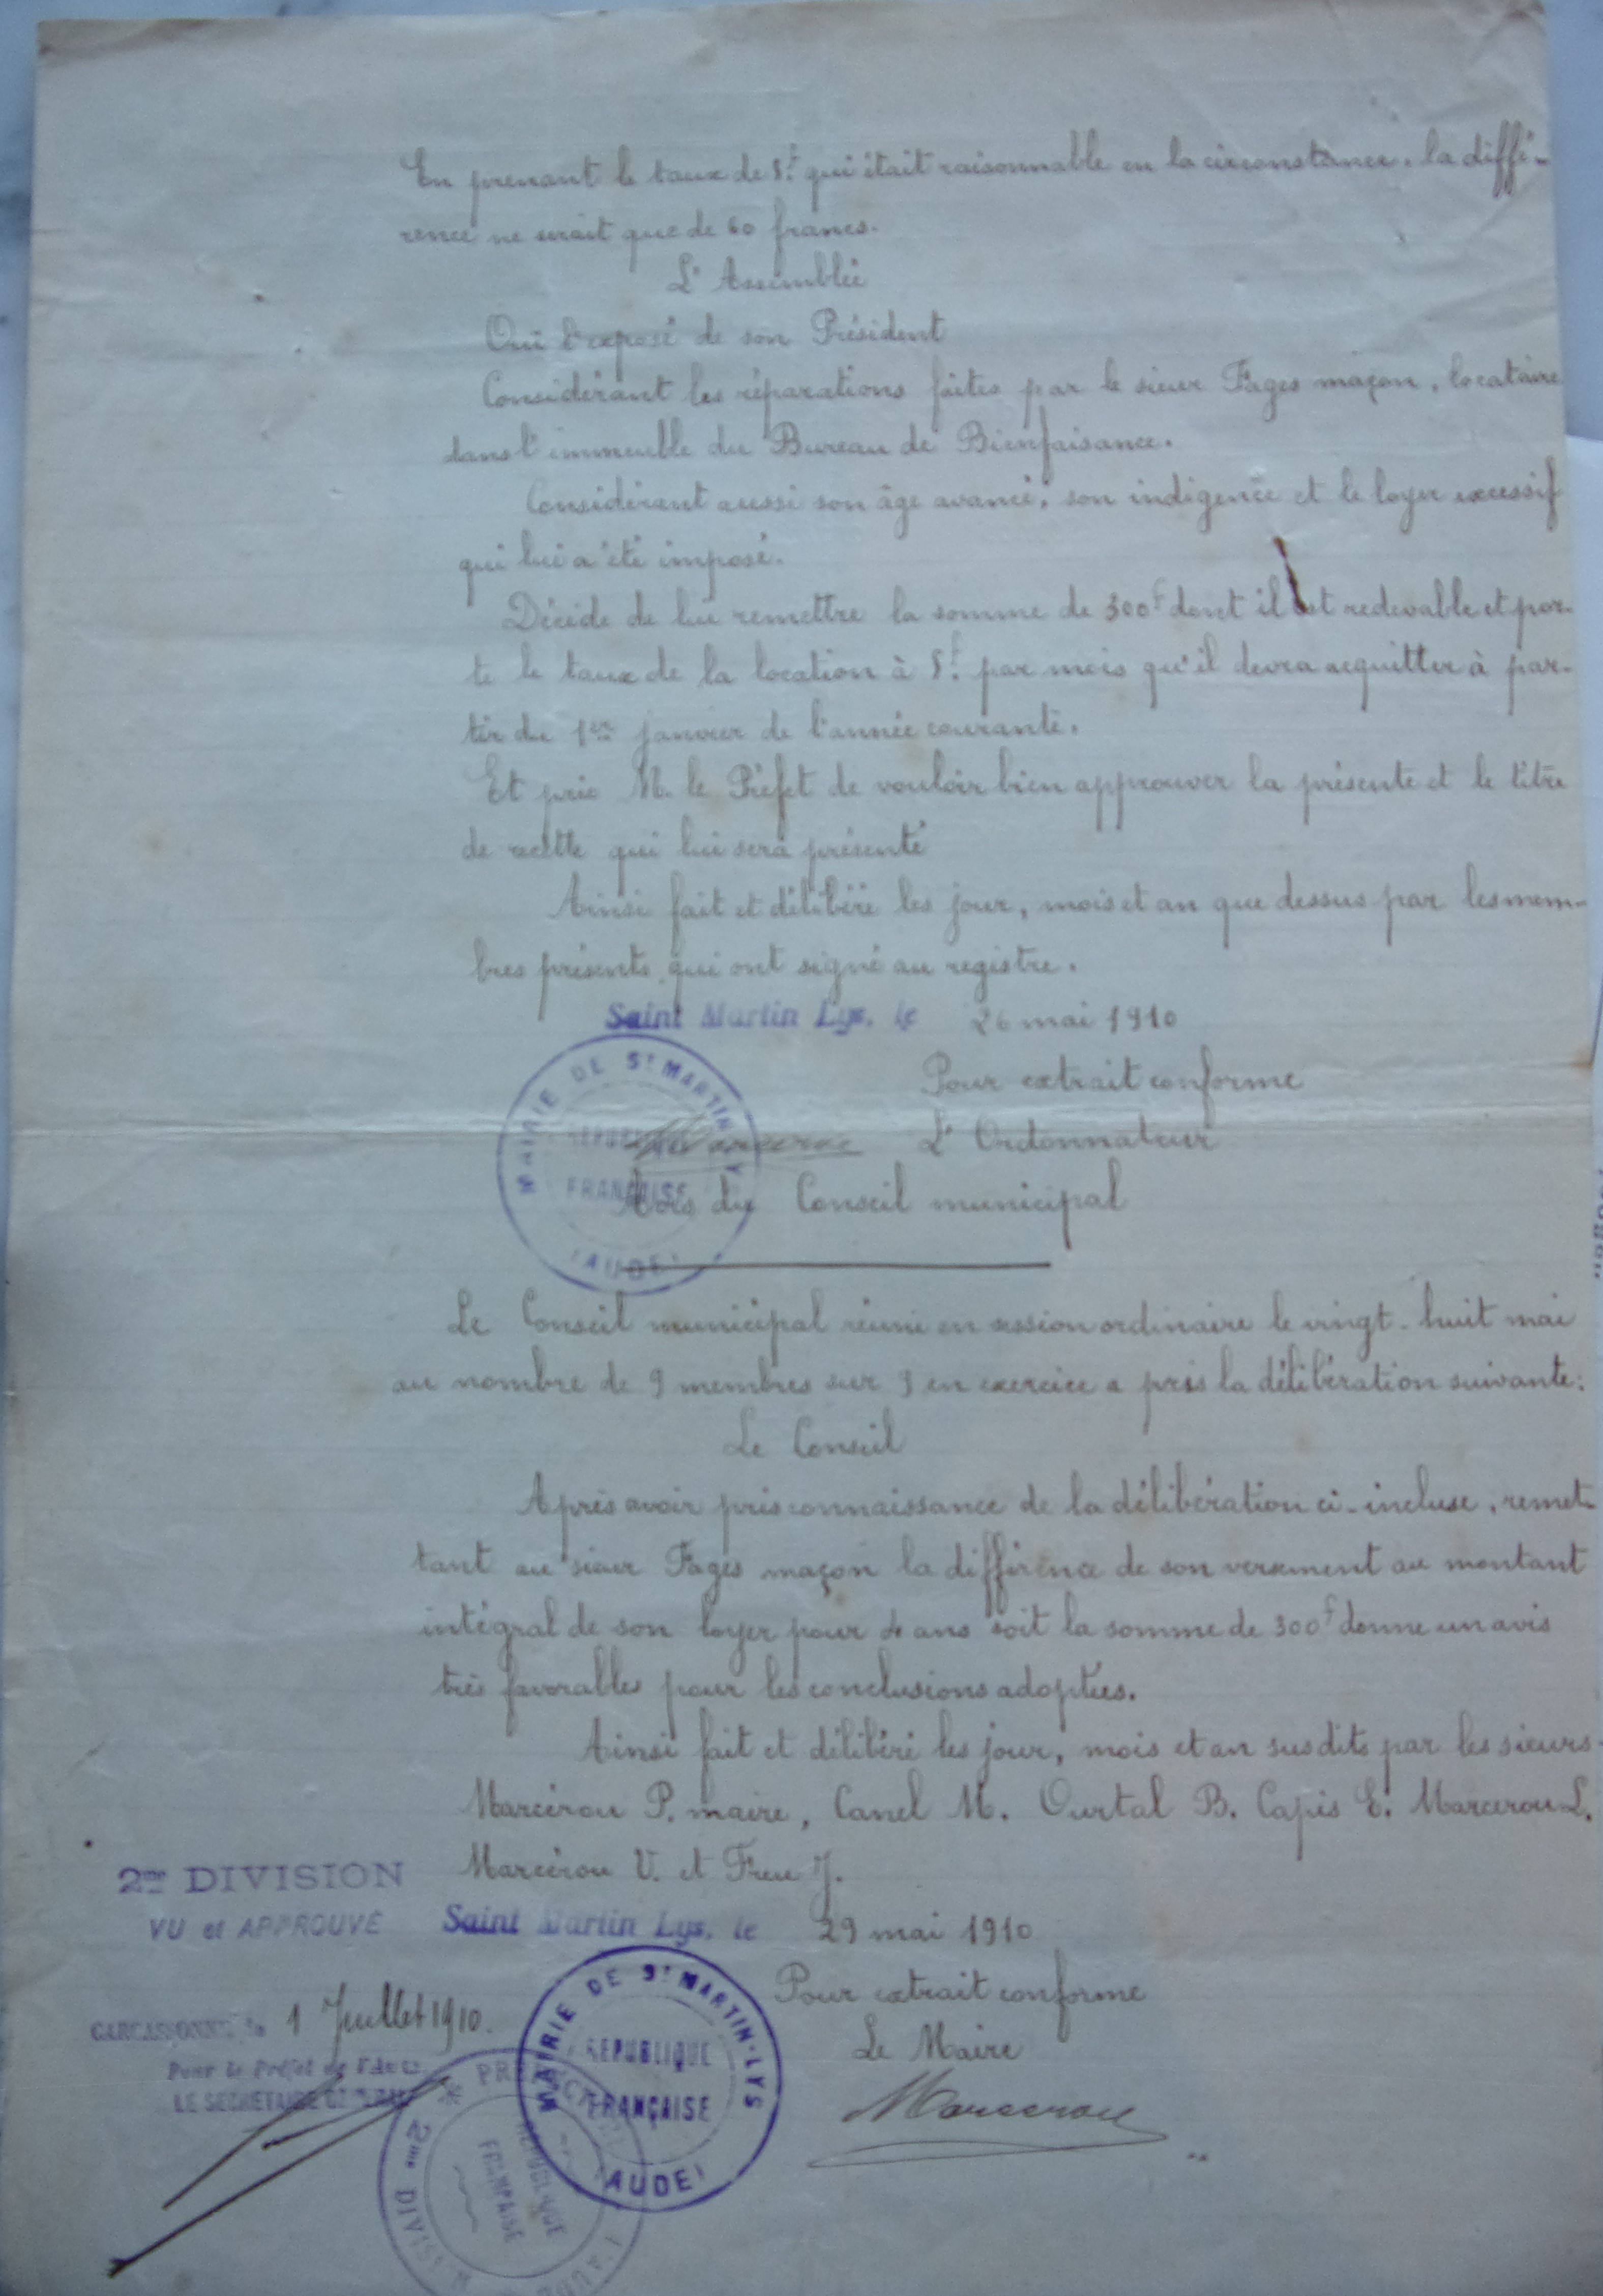 En prenant le taux de 5f. qui était raisonnable en la circonstance, la diffé-
rence ne serait que de 60 francs.
L'Assemblée
Ouï l'exposé de son Président
Considérant les réparations faites par le sieur Fages maçon, locataire
dans l'immeuble du Bureau de Bienfaisance.
Considérant aussi son âge avancé, son indigence et le loyer excessif
qui lui a été imposé.
Décide de lui remettre la somme de 300f dont il est redevable et por-
te le taux de la location à 5f. par mois qu'il devra acquitter à par-
tir du 1er janvier de l'année courante.
Et prie M. le Préfet de vouloir bien approuver la présente et le titre
de recette qui lui sera présenté
Ainsi fait et délibéré les jour, mois et an que dessus par les mem-
bres présents qui ont signé au registre.
Saint Martin Lys, le 26 mai 1910
Pour extrait conforme
L'Ordonnateur
Marcerou
MAIRIE DE ST MARTIN
RÉPUBLIQUE
FRANÇAISE
(AUDE)
Avis du Conseil municipal
Le Conseil municipal réuni en session ordinaire le vingt-huit mai
au nombre de 9 membres sur 9 en exercice a pris la délibération suivante:
Le Conseil
Après avoir pris connaissance de la délibération ci-incluse, remet-
tant au sieur Fages maçon la différence de son versement au montant
intégral de son loyer pour 4 ans soit la somme de 300f donne un avis
très favorables pour les conclusions adoptées.
Ainsi fait et délibéré les jour, mois et an susdits par les sieurs
Marcérou P. maire, Canel M. Ourtal B. Capis E. Marcerou L.
Marcérou V. et Freu J.
Saint Martin Lys, le 29 mai 1910
Pour extrait conforme
Le Maire
Marcerou
MAIRIE DE ST MARTIN-LYS
RÉPUBLIQUE
FRANÇAISE
(AUDE)
2me DIVISION
VU et APPROUVÉ
CARCASSONNE, le 1 Juillet 1910.
Pour le Préfet de l'Aude
LE SECRÉTAIRE GÉNÉRAL
PRÉFECTURE DE L'AUDE
2me DIVISION
RÉPUBLIQUE
FRANÇAISE